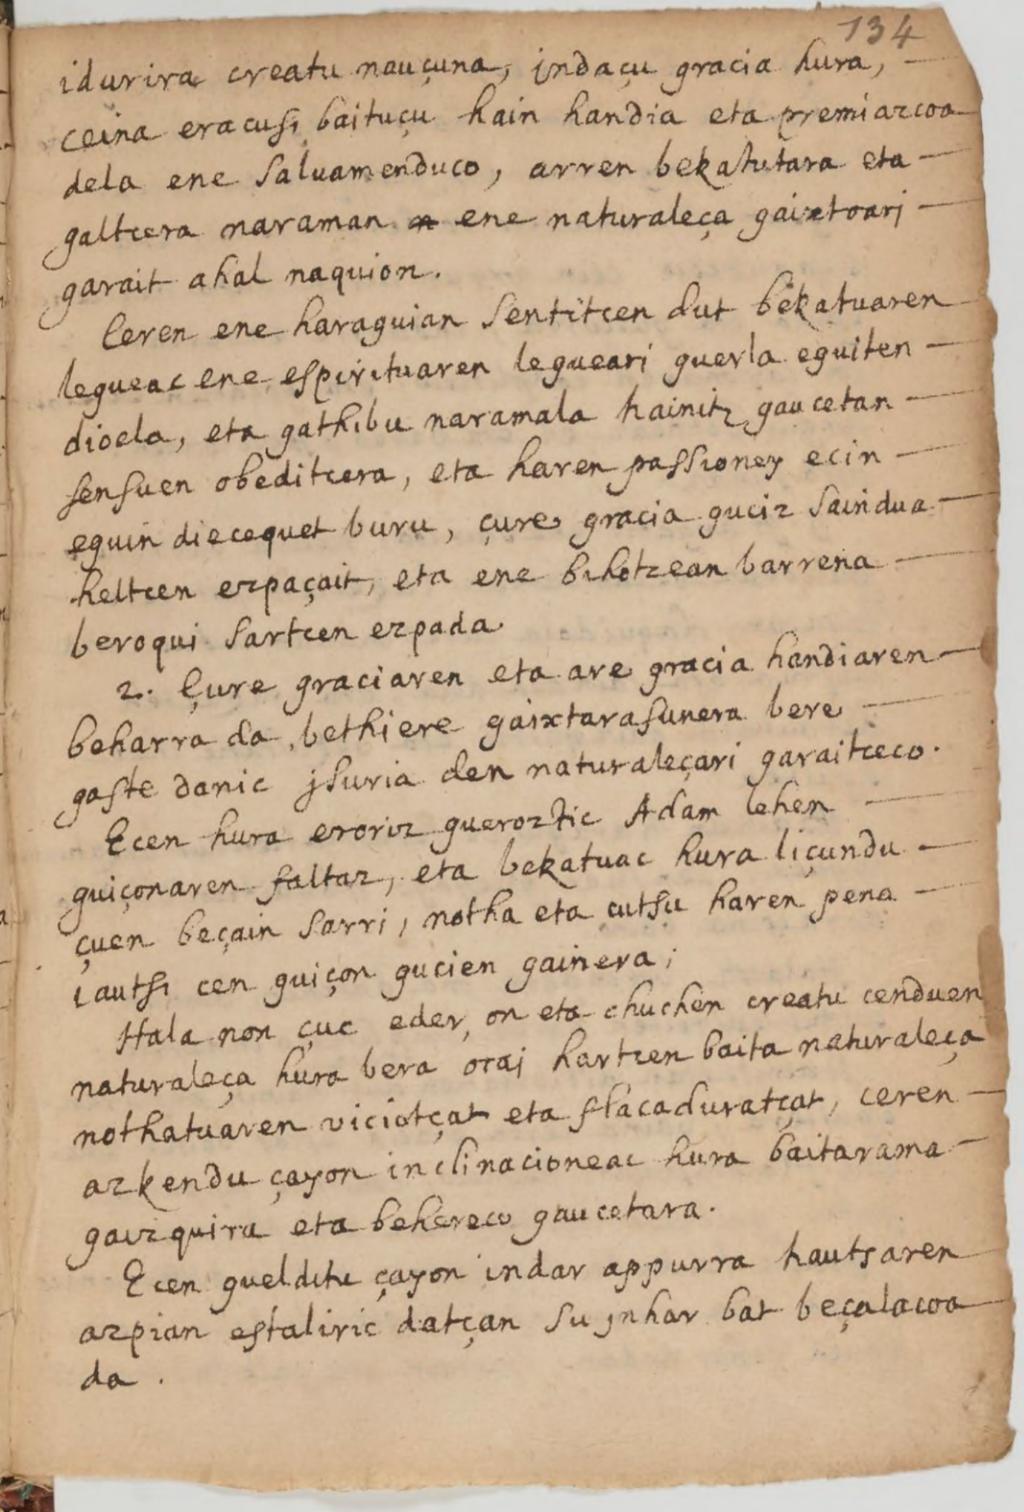 134
idurira creatu nauçuna, jndaçu gracia hura,
ceina eracusi baituçu hain handia eta premiazcoa
dela ene saluamenduco, arren bekatutara eta
galtcera naraman ene naturaleça gaixtoarj
garait ahal naquion.
Ceren ene haraguian sentitcen dut bekatuaren
legueac ene espirituaren legueari guerla eguiten
dioela, eta gathibu naramala hainitz gaucetan
sensuen obeditcera, eta haren passioney ecin
eguin diecequet buru, çure gracia guciz saindua
heltcen ezpaçait, eta ene bihotzean barrena
beroqui sartcen ezpada.
2. Çure graciaren eta are gracia handiaren
beharra da, bethiere gaixtarasunera bere
gaste danic jsuria den naturaleçari garaitceco.
Ecen hura eroriz gueroztic Adam lehen
guiçonaren faltaz, eta bekatuac hura liçundu
çuen beçain sarri, notha eta cutsu haren pena
iautsi cen guiçon gucien gainera;
Hala non çuc eder, on eta chuchen creatu cenduen
naturaleça hura bera oraj hartcen baita naturaleça
nothatuaren viciotçat eta flacaduratçat, ceren
azkendu çayon inclinacioneac hura baitarama
gaizquira eta behereco gaucetara.
Ecen gueldittu çayon indar appurra hautsaren
azpian estaliric datçan su jnhar bat beçalacoa
da.